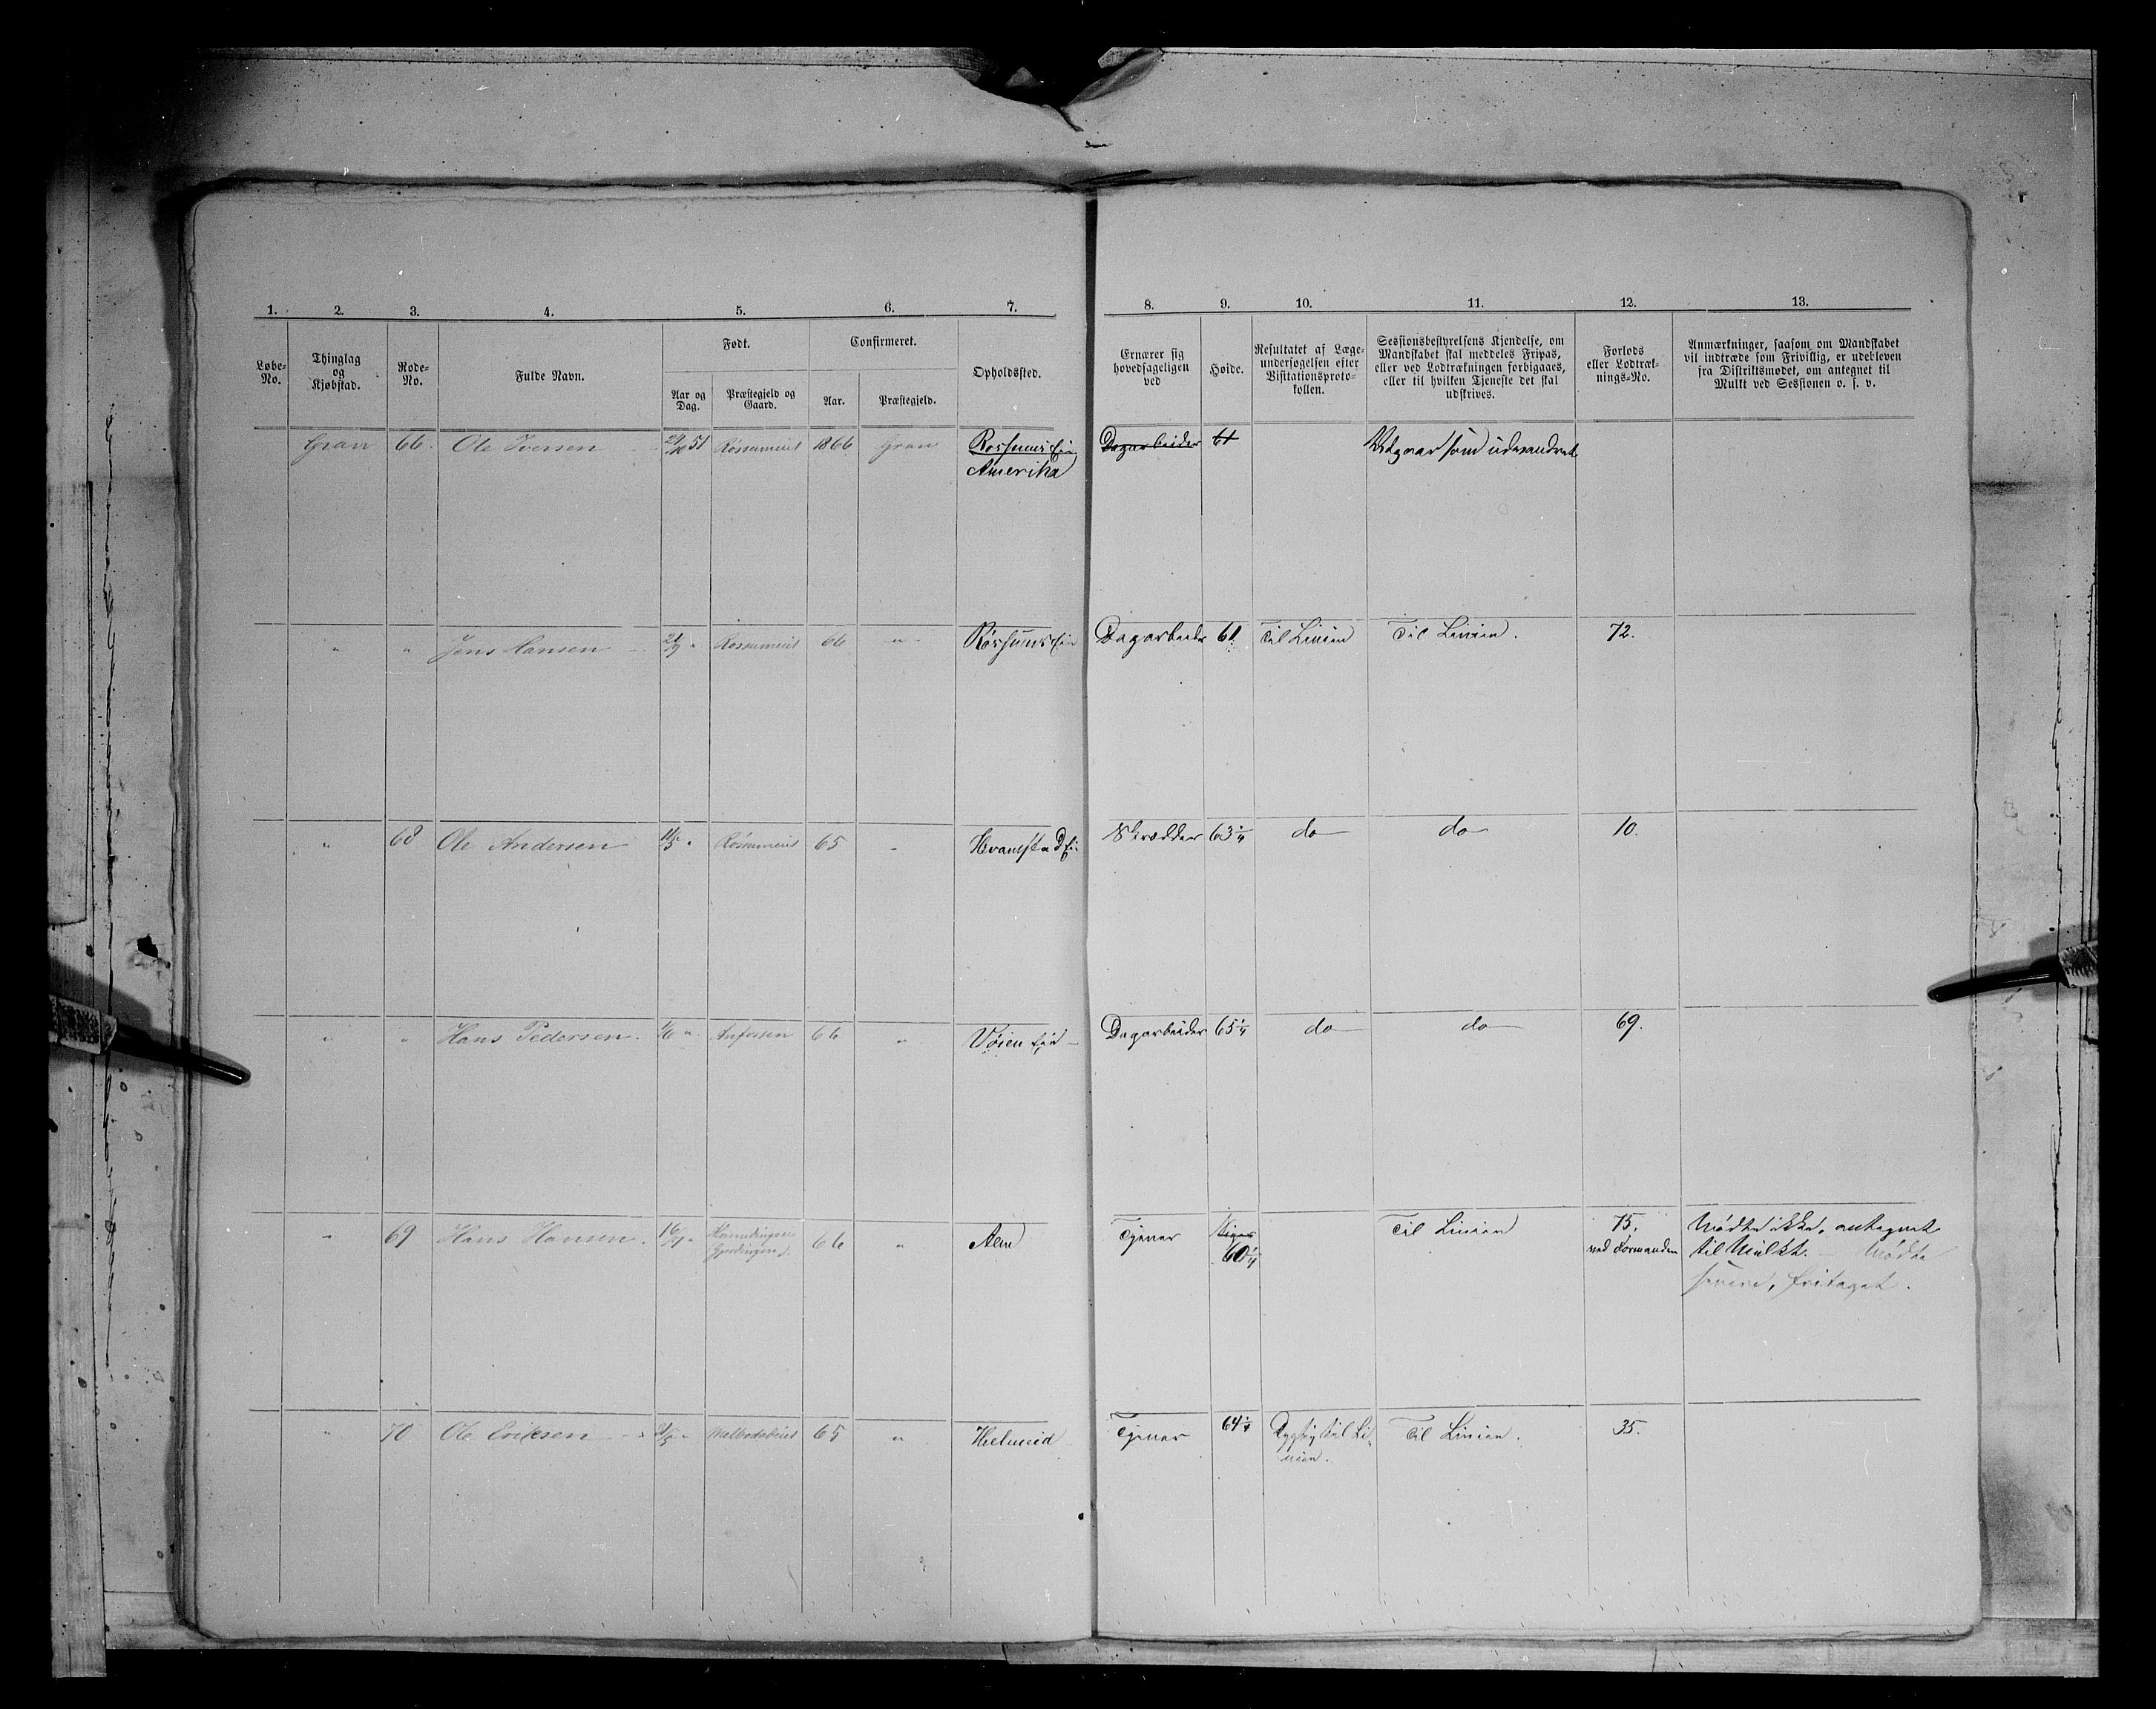 1. 2. 3. 4. 5. 6. 7. 8. 9. 10. 11. 12. 13.
Løbe-
No.
Thinglag
og
Kjøbstad.
Rode-
No.
Fulde Navn.
Født.
Aar og
Dag.
Præstegjeld og
Gaard.
Confirmeret.
Aar.
Præstegjeld.
Opholdssted.
Ernærer sig
hovedsageligen
ved
Høide.
Resultatet af Læge-
undersøgelsen efter
Visitationsproto-
kollen.
Sessionsbestyrelsens Kjendelse, om
Mandskabet skal meddeles Fripas,
eller ved Lodtrækningen forbigaaes,
eller til hvilken Tjeneste det skal
udskrives.
Forlods
eller Lodtræk-
nings-No.
Anmærkninger, saasom om Mandskabet
vil indtræde som Frivillig, er udebleven
fra Distriktsmødet, om antegnet til
Mulkt ved Sessionen o. s. v.
Gran 66. Ole Iversen 51 Røssumeiet 1866 Gran Røssumsei Dagarbeider 61 Udgaar som udvandret
Amerika
" " Jens Hansen " Røssumeiet 66 " Røssumsei Dagarbeider 61 Til Linien Til Linien. 72.
" 68 Ole Andersen 11/5 " Røssumeiet 65 " Hvamstad Ei. Skrædder 63 1/4 do do 10.
" " Hans Pedersen. 1/6 " Anfossen 66 " Vøien Eid Dagarbeider 65 1/4 do do 69.
" 69 Hans Hansen. 16/ " 66 " Alm Tjener Til Linien 75. Mødte ikke, antegnet
60 1/4 ved Formanden til Mulkt. Mødte
senere, fritaget.
" 70 Ole Eriksen " 65 " Helmeid Tjener 64 1/4 Dygtig til Li- Til Linien. 35.
nien.